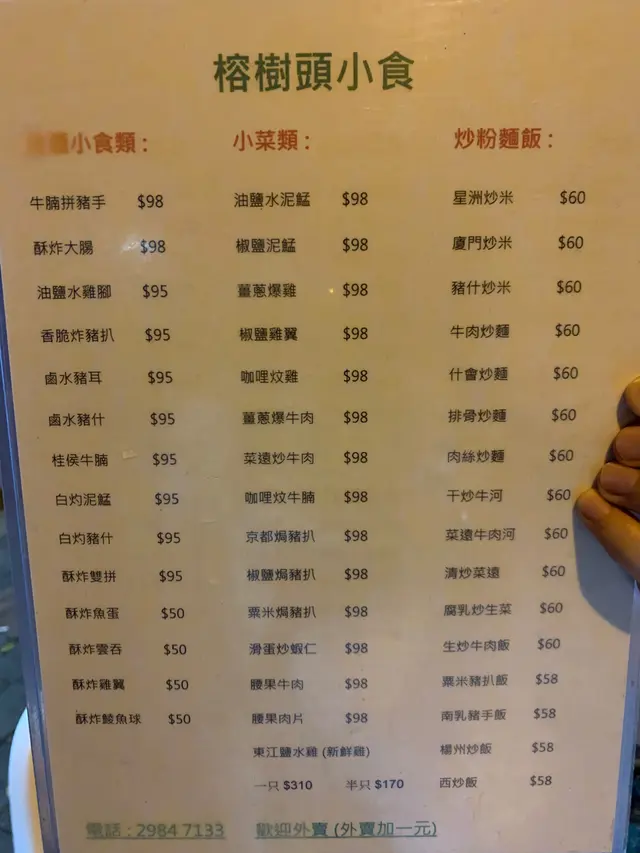 榕樹頭小食
小食類：
牛腩拼豬手 $98
酥炸大腸 $98
油鹽水雞腳 $95
香脆炸豬扒 $95
鹵水豬耳 $95
鹵水豬什 $95
桂侯牛腩 $95
白灼泥鯭 $95
白灼豬什 $95
酥炸雙拼 $95
酥炸魚蛋 $50
酥炸雲吞 $50
酥炸雞翼 $50
酥炸鯪魚球 $50
小菜類：
油鹽水泥鯭 $98
椒鹽泥鯭 $98
薑蔥爆雞 $98
椒鹽雞翼 $98
咖哩炆雞 $98
薑蔥爆牛肉 $98
菜遠炒牛肉 $98
咖哩炆牛腩 $98
京都焗豬扒 $98
椒鹽焗豬扒 $98
粟米焗豬扒 $98
滑蛋炒蝦仁 $98
腰果牛肉 $98
腰果肉片 $98
東江鹽水雞 (新鮮雞)
一只 $310 半只 $170
炒粉麵飯：
星洲炒米 $60
廈門炒米 $60
豬什炒米 $60
牛肉炒麵 $60
什會炒麵 $60
排骨炒麵 $60
肉絲炒麵 $60
干炒牛河 $60
菜遠牛肉河 $60
清炒菜遠 $60
腐乳炒生菜 $60
生炒牛肉飯 $60
粟米豬扒飯 $58
南乳豬手飯 $58
楊州炒飯 $58
西炒飯 $58
電話：2984 7133 歡迎外賣 (外賣加一元)